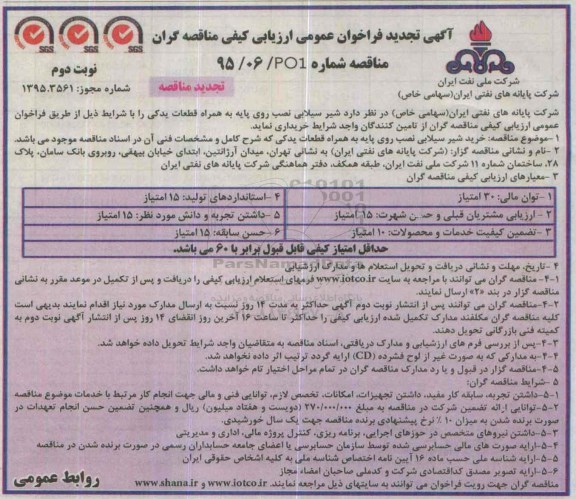 آگهی تجدید فراخوان عمومی ارزیابی کیفی مناقصه گران
مناقصه شماره PO1/ ۰۶/ ۹۵
نوبت دوم
تجدید مناقصه
شماره مجوز: ۱۳۹۵.۳۵۶۱
شرکت ملی نفت ایران
شرکت پایانه های نفتی ایران(سهامی خاص)
شرکت پایانه های نفتی ایران(سهامی خاص) در نظر دارد شیر سیلابی نصب روی پایه به همراه قطعات یدکی را با شرایط ذیل از طریق فراخوان
عمومی ارزیابی کیفی مناقصه گران از تامین کنندگان واجد شرایط خریداری نماید.
۱-موضوع مناقصه: خرید شیر سیلابی نصب روی پایه به همراه قطعات یدکی که شرح کامل و مشخصات فنی آن در اسناد مناقصه موجود می باشد.
۲- نام و نشانی مناقصه گزار: (شرکت پایانه های نفتی ایران) به نشانی تهران، میدان آرژانتین، ابتدای خیابان بیهقی، روبروی بانک سامان، پلاک
۲۸، ساختمان شماره ۱۱ شرکت ملی نفت ایران، طبقه همکف، دفتر هماهنگی شرکت پایانه های نفتی ایران
۳-معیارهای ارزیابی کیفی مناقصه گران
۱-توان مالی: ۳۰ امتیاز
۴-استانداردهای تولید: ۱۵ امتیاز
۲- ارزیابی مشتریان قبلی و حسن شهرت: ۱۵ امتیاز
۵-داشتن تجربه و دانش مورد نظر: ۱۵ امتیاز
۳-تضمین کیفیت خدمات و محصولات: ۱۰ امتیاز
۶-حسن سابقه: ۱۵ امتیاز
حداقل امتیاز کیفی قابل قبول برابر با ۶۰ می باشد.
۴-تاریخ، مهلت و نشانی دریافت و تحویل استعلام ها و مدارک ارزشیابی
۴-۱-مناقصه گران می توانند با مراجعه به سایت www.iotco.ir فرمهای استعلام ارزیابی کیفی را دریافت و پس از تکمیل در موعد مقرر به نشانی
مناقصه گزار در بند «۲» ارسال نمایند.
۴-۲-مناقصه گران می توانند پس از انتشار نوبت دوم آگهی حداکثر به مدت ۱۴ روز نسبت به ارسال مدارک مورد نیاز اقدام نمایند بدیهی است
کلیه مناقصه گران مکلفند مدارک تکمیل شده ارزیابی کیفی را حداکثر تا ساعت ۱۶ آخرین روز انقضای ۱۴ روز پس از انتشار آگهی نوبت دوم به
کمیته فنی بازرگانی تحویل دهند.
۴-۳-پس از بررسی فرم های ارزشیابی و مدارک دریافتی، اسناد مناقصه به متقاضیان واجد شرایط تحویل داده خواهد شد.
۴-۴-به مدارکی که به صورت غیر از لوح فشرده (CD) ارایه گردد ترتیب اثر داده نخواهد شد.
۴-۵-مناقصه گزار در قبول و یا رد مدارک مناقصه گران در تمام مراحل اختیار تام خواهد داشت.
۵-شرایط مناقصه گران:
۵-۱-داشتن تجربه، سابقه کار مفید، داشتن تجهیزات، امکانات، تخصص لازم، توانایی فنی و مالی جهت انجام کار مرتبط با خدمات موضوع مناقصه
۵-۲-توانایی ارائه تضمین شرکت در مناقصه به مبلغ ۲۷۰/۰۰۰/۰۰۰ (دویست و هفتاد میلیون) ریال و همچنین تضمین حسن انجام تعهدات در
صورت برنده شدن به میزان ۱۰٪ نرخ پیشنهادی برنده مناقصه جهت یک سال خورشیدی.
۵-۳-داشتن نیروهای متخصص در حوزهای اجرایی، برنامه ریزی، کنترل پروژه مالی، اداری و مدیریتی
۵-۴-ارایه صورت های مالی حسابرسی شده توسط سازمان حسابرسی یا اعضای جامعه حسابداران رسمی در صورت برنده شدن در مناقصه
۵-۵-ارایه شناسه ملی حسب ماده ۱۶ آیین نامه اختصاص شناسه ملی به کلیه اشخاص حقوقی ایران
۵-۶-ارایه تصویر مصدق کداقتصادی شرکت و کدملی صاحبان امضاء مجاز
مناقصه گران جهت رویت فراخوان می توانند به سایتهای ذیل مراجعه نمایند. www.iotco.ir و www.shana.ir
روابط عمومی